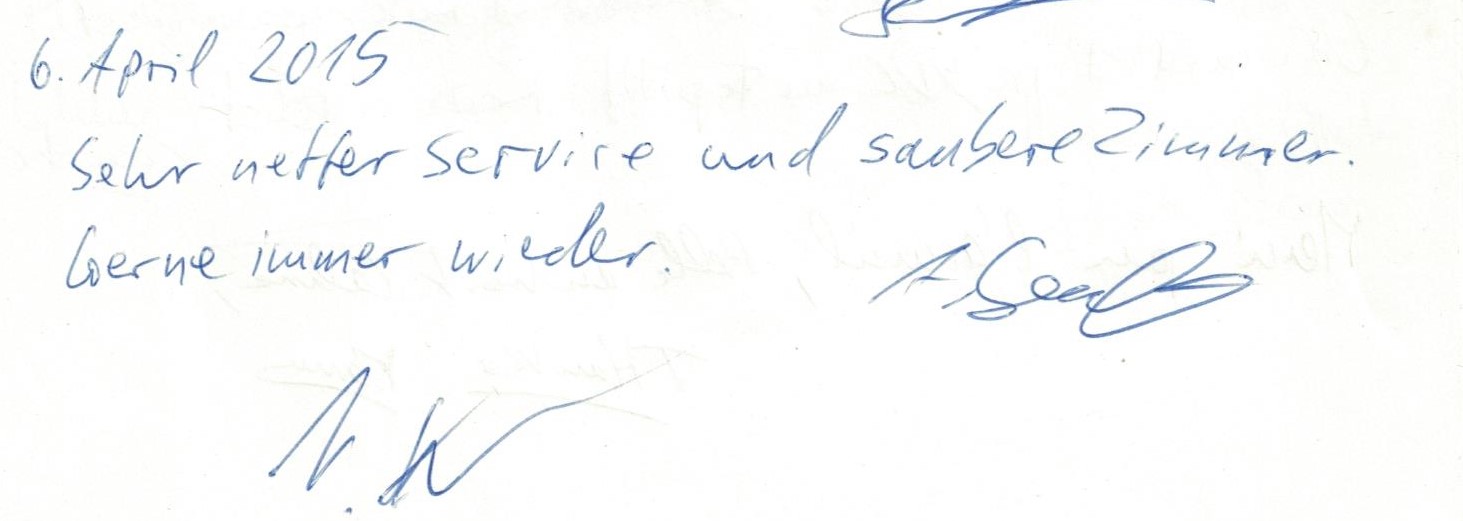 6. April 2015
Sehr netter Service und saubere Zimmer.
Gerne immer wieder.